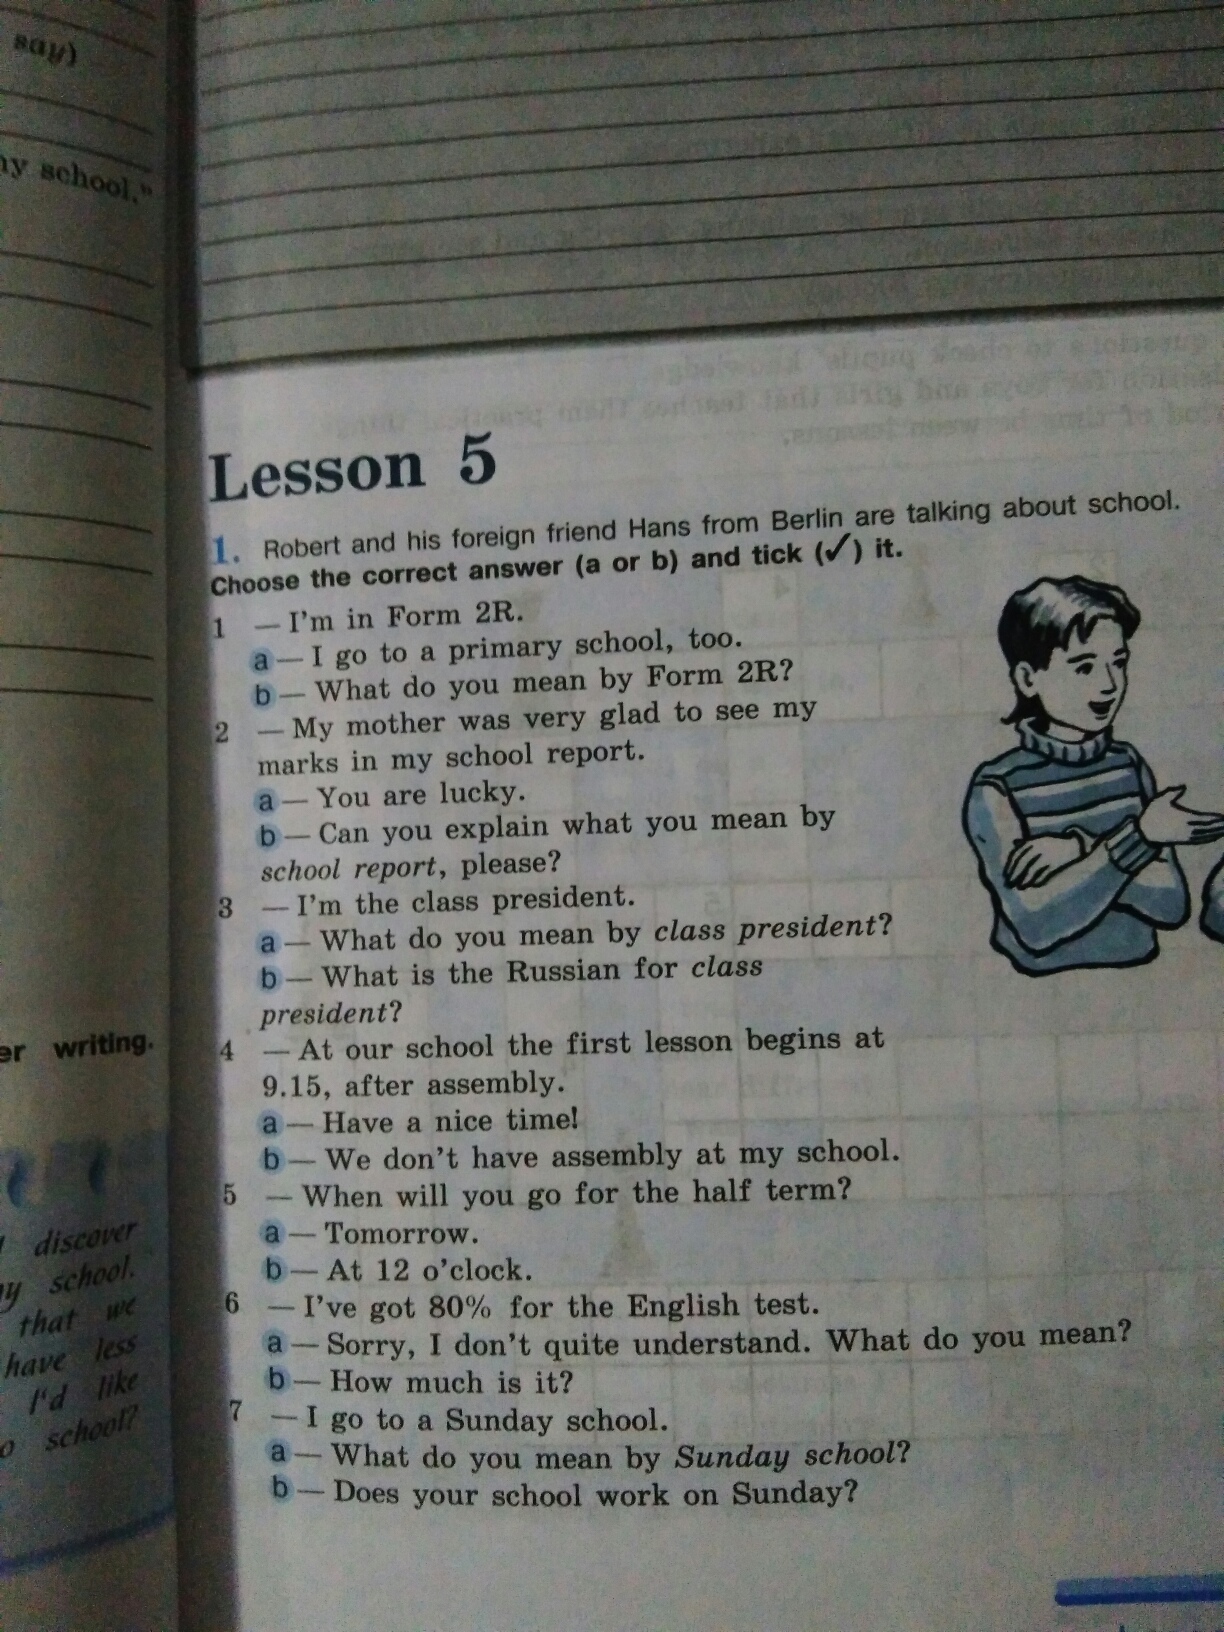 say)
my school."
er writing.
discover
my school.
that we
have less
I'd like
school?
Lesson 5
1. Robert and his foreign friend Hans from Berlin are talking about school.
Choose the correct answer (a or b) and tick (✓) it.
1 — I'm in Form 2R.
a — I go to a primary school, too.
b — What do you mean by Form 2R?
2 — My mother was very glad to see my
marks in my school report.
a — You are lucky.
b — Can you explain what you mean by
school report, please?
3 — I'm the class president.
a — What do you mean by class president?
b — What is the Russian for class
president?
4 — At our school the first lesson begins at
9.15, after assembly.
a — Have a nice time!
b — We don't have assembly at my school.
5 — When will you go for the half term?
a — Tomorrow.
b — At 12 o'clock.
6 — I've got 80% for the English test.
a — Sorry, I don't quite understand. What do you mean?
b — How much is it?
7 — I go to a Sunday school.
a — What do you mean by Sunday school?
b — Does your school work on Sunday?